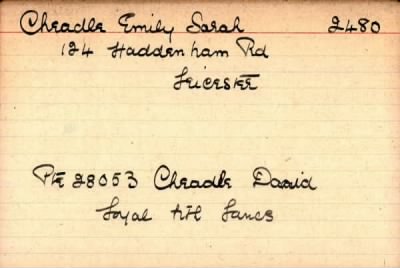 Cheadle Emily Sarah 2480
124 Haddenham Rd
Leicester
Pte 28053 Cheadle David
Loyal Nth Lancs